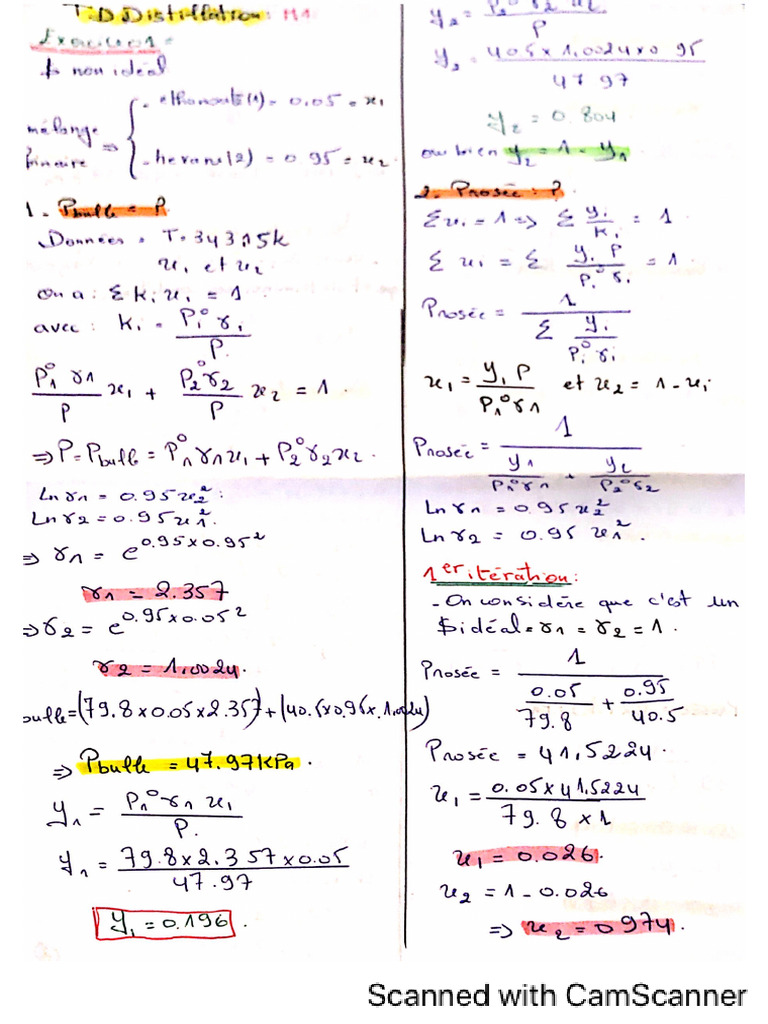 T.D Distillation: M1
Exercice 01:
$ non idéal
mélange binaire ⇒ { - ethanol (1) = 0.05 = x1
- hexane (2) = 0.95 = x2.
1 - Pbulle = P
Données: T = 343.15k
x1 et x2
on a: Σ Ki xi = 1
avec: Ki = Pi° γi / P.
P1° γ1 / P x1 + P2° γ2 / P x2 = 1.
⇒ P = Pbulle = P1° γ1 x1 + P2° γ2 x2.
Ln γ1 = 0.95 x2²:
Ln γ2 = 0.95 x1².
⇒ γ1 = e^0.95×0.95²
γ1 = 2.357
⇒ γ2 = e^0.95×0.05²
γ2 = 1.0024.
bulle = (79.8×0.05×2.357) + (40.5×0.95×1.0024)
⇒ Pbulle = 47.97KPa.
y1 = P1° γ1 x1 / P.
y1 = 79.8×2.357×0.05 / 47.97
y1 = 0.196.
y2 = P2° γ2 x2 / P
y2 = 405×1.0024×0 95 / 47 97
y2 = 0.804
ou bien y2 = 1 - y1
2 - Prosée: ?
Σ xi = 1 ⇒ Σ yi / Ki = 1
Σ xi = Σ yi P / Pi° γi = 1
Prosée = 1 / Σ yi / Pi° γi
x1 = y1 P / P1° γ1 et x2 = 1 - x1
Prosée = 1 / y1 / P1° γ1 + y2 / P2° γ2
Ln γ1 = 0.95 x2²
Ln γ2 = 0.95 x1².
1er itération:
- On considère que c'est un
$ idéal = γ1 = γ2 = 1.
Prosée = 1 / 0.05 / 79.8 + 0.95 / 40.5
Prosée = 41,5224.
x1 = 0.05×41.5224 / 79.8×1
x1 = 0.026.
x2 = 1 - 0.026
⇒ x2 = 0 974.
Scanned with CamScanner